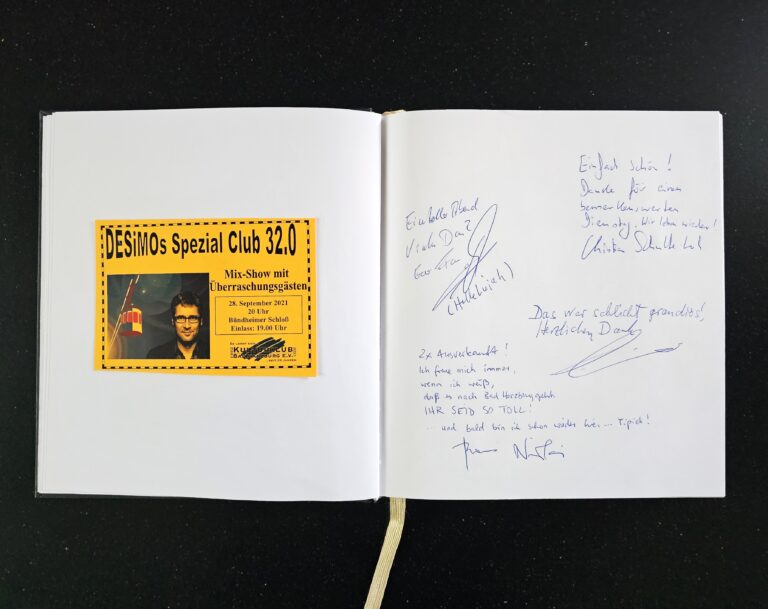 DESiMOs Spezial Club 32.0
Mix-Show mit
Überraschungsgästen
28. September 2021
20 Uhr
Bündheimer Schloß
Einlass: 19.00 Uhr
Ein toller Abend
Vielen Dank
(Hallelujah)
Einfach schön!
Danke für einen
bemerkenswerten
Dienstag. Wir loben wieder!
Christian Schulte
Das war schlicht grandios!
Herzlichen Dank
2x Ausverkauft!
Ich freue mich immer,
wenn ich weiß,
daß es nach Bad Harzburg geht
IHR SEID SO TOLL!
... und bald bin ich schon wieder hier...